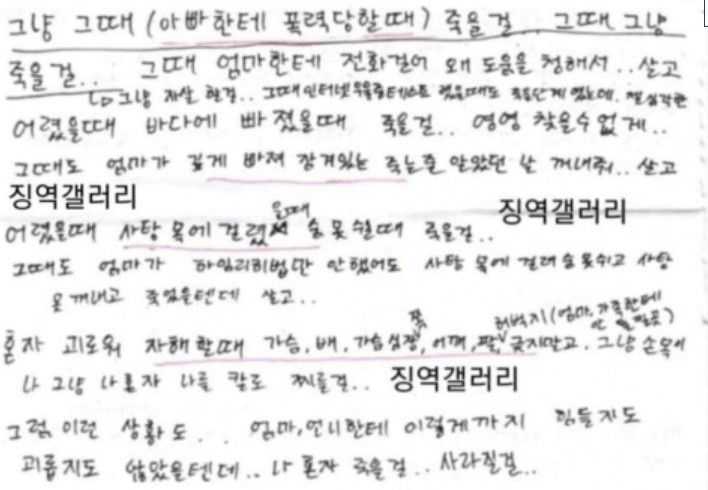 그냥 그때 (아빠한테 폭력당할때) 죽을걸.. 그때 그냥
죽을걸.. 그때 엄마한테 전화걸어 왜 도움을 청해서.. 살고
↳ 그냥 자살 할걸.. 그때 인터넷 우울증테스트 했을때도 단계 였는데.
어렸을때 바다에 빠졌을때 죽을걸.. 영영 찾을수없게..
그때도 엄마가 깊게 빠져 잠겨있는 죽는줄 알았던 날 꺼내줘.. 살고
징역갤러리
징역갤러리
어렸을때 사탕 목에 걸렸을때 숨 못쉴때 죽을걸..
그때도 엄마가 하임리히법만 안했어도 사탕 목에 걸려 숨못쉬고 사탕
못 꺼내고 죽었을텐데 살고..
혼자 괴로워 자해할때 가슴, 배, 가슴심장쪽, 어깨, 팔, 허벅지 (엄마, 가족한테
긋지말고, 그냥 손목이
나 그냥 나혼자 나를 칼로 찌를걸..
징역갤러리
그럼 이런 상황도.. 엄마, 언니한테 이렇게까지 힘들지도
괴롭지도 않았을텐데.. 나 혼자 죽을걸.. 사라질걸..